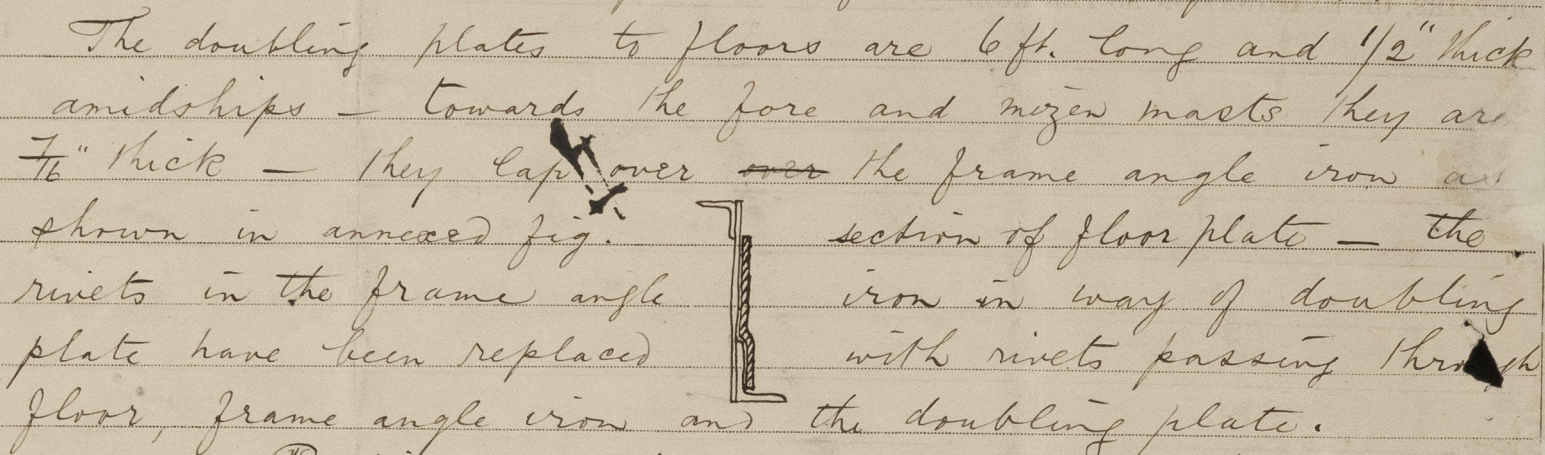 The doubling plates to floors are 6 ft. long and 1/2" thick
amidships — towards the fore and mizen masts they are
7/16" thick — they lap over over the frame angle iron as
shown in annexed fig. section of floor plate — the
rivets in the frame angle iron in way of doubling
plate have been replaced with rivets passing through
floor, frame angle iron and the doubling plate.